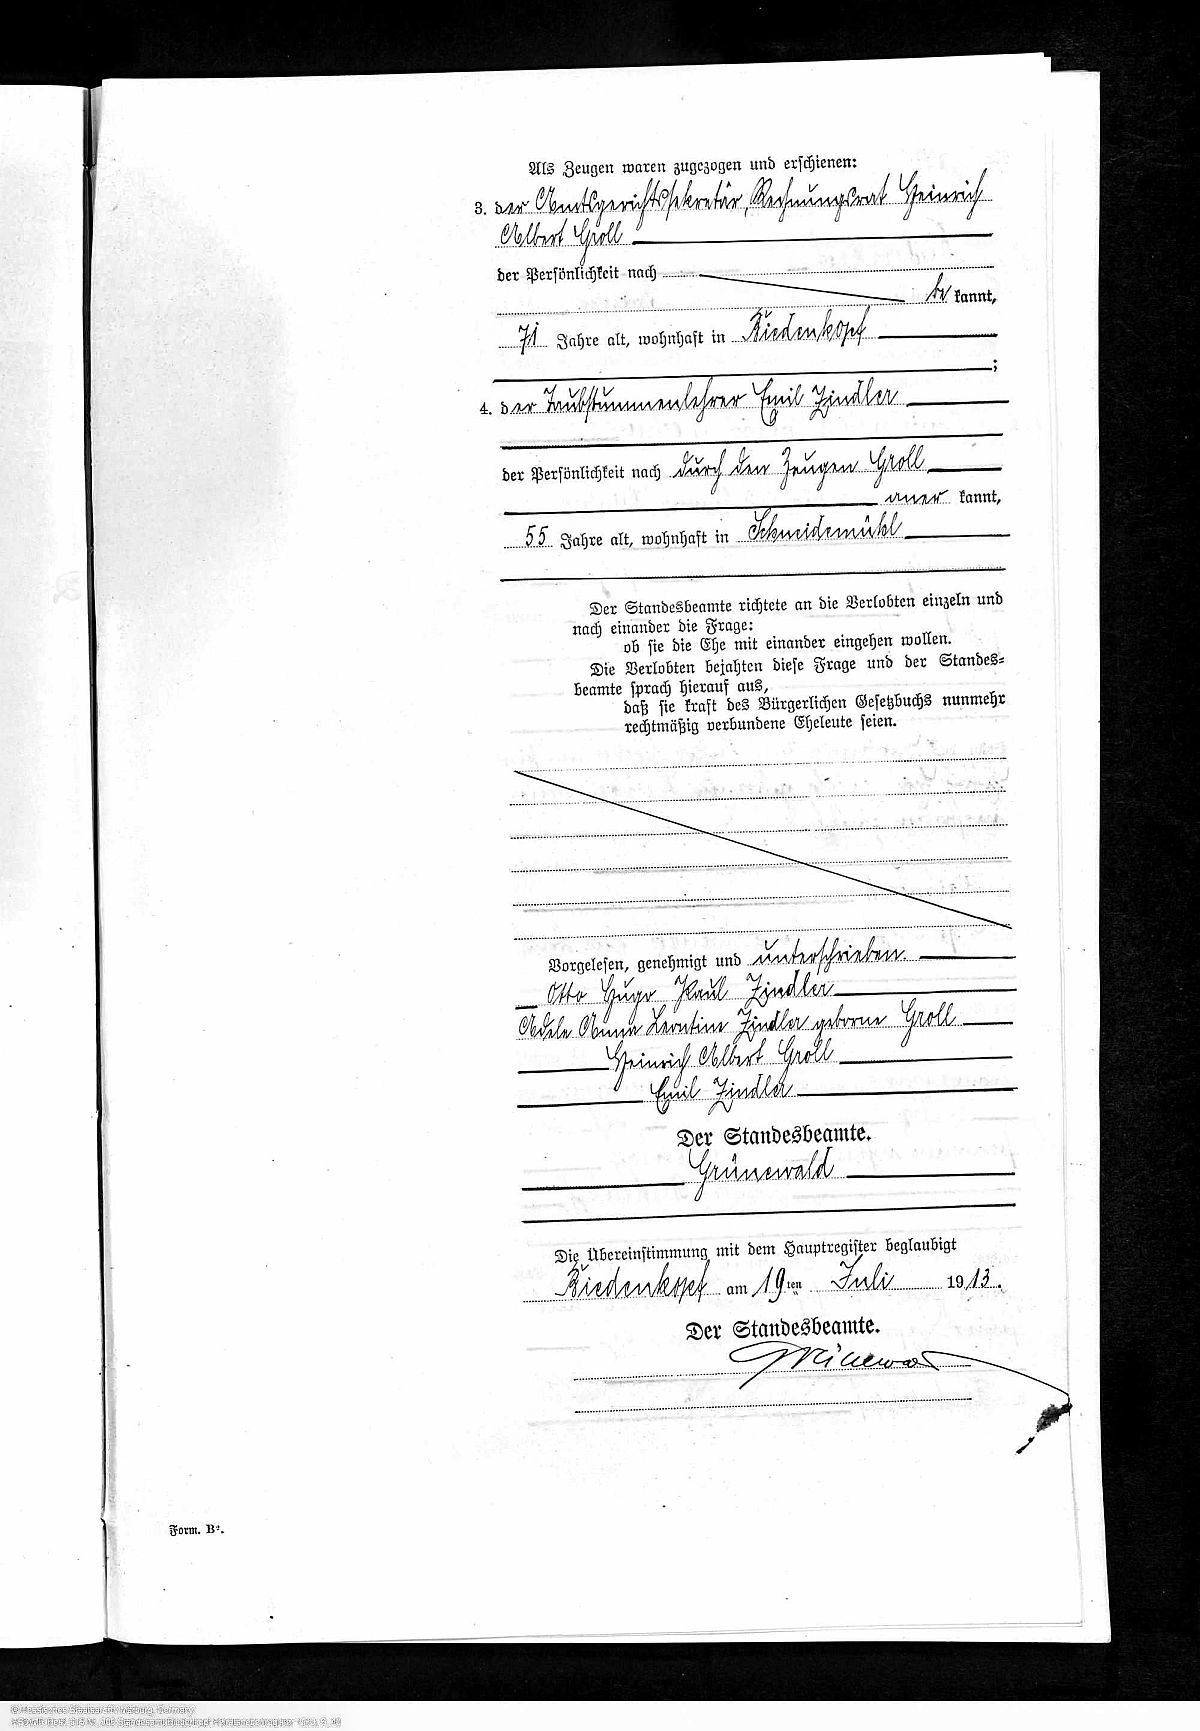 Als Zeugen waren zugezogen und erschienen:
3. der Amtsgerichtssekretär, Rechnungsrat Heinrich
Albert Groll
der Persönlichkeit nach
be kannt,
71 Jahre alt, wohnhaft in Biedenkopf
;
4. der Taubstummenlehrer Emil Zindler
der Persönlichkeit nach durch den Zeugen Groll
aner kannt,
55 Jahre alt, wohnhaft in Schneidemühl
Der Standesbeamte richtete an die Verlobten einzeln und
nach einander die Frage:
ob sie die Ehe mit einander eingehen wollen.
Die Verlobten bejahten diese Frage und der Standes=
beamte sprach hierauf aus,
daß sie kraft des Bürgerlichen Gesetzbuchs nunmehr
rechtmäßig verbundene Eheleute seien.
Vorgelesen, genehmigt und unterschrieben.
Otto Hugo Paul Zindler
Adele Anna Leontine Zindler geborne Groll
Heinrich Albert Groll
Emil Zindler
Der Standesbeamte.
Grünewald
Die Übereinstimmung mit dem Hauptregister beglaubigt
Biedenkopf am 19ten Juli 1913.
Der Standesbeamte.
Grünewald
Form. B².